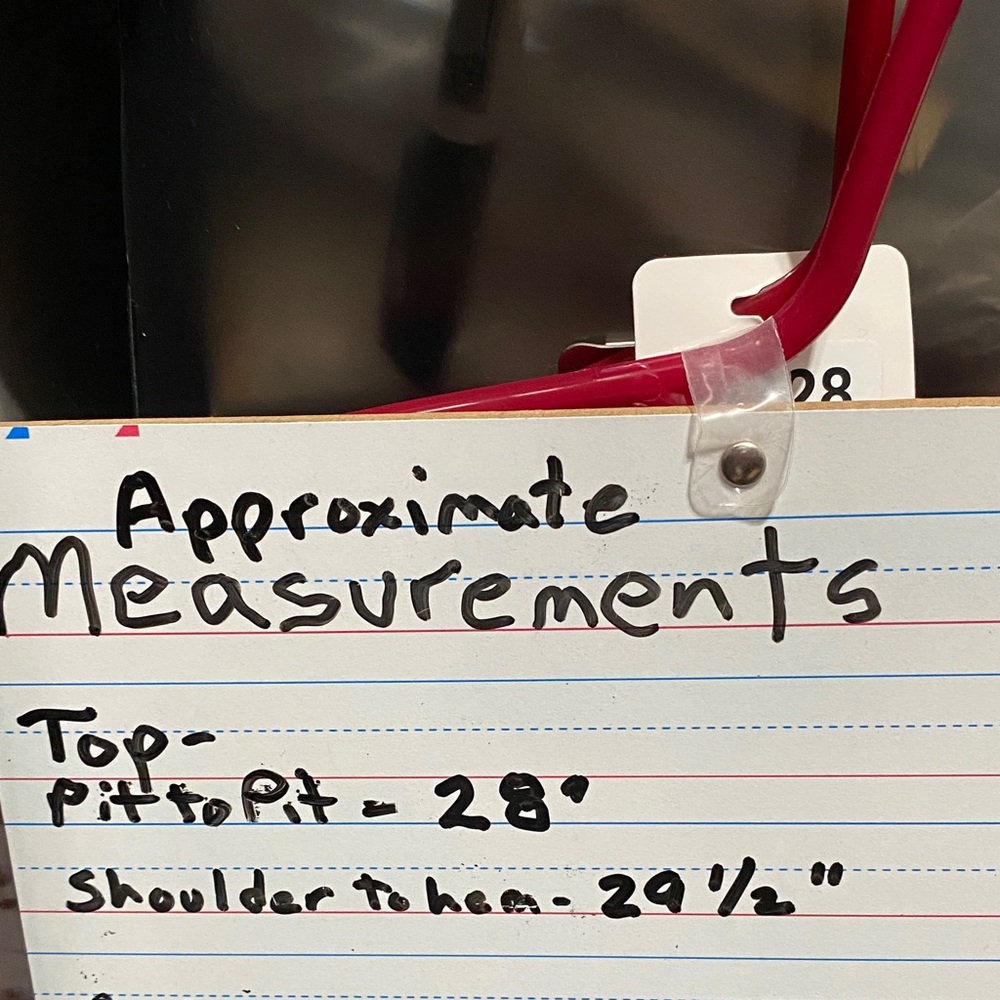 28
Approximate
Measurements
Top-
Pit to Pit - 28"
Shoulder to hem - 29 1/2"